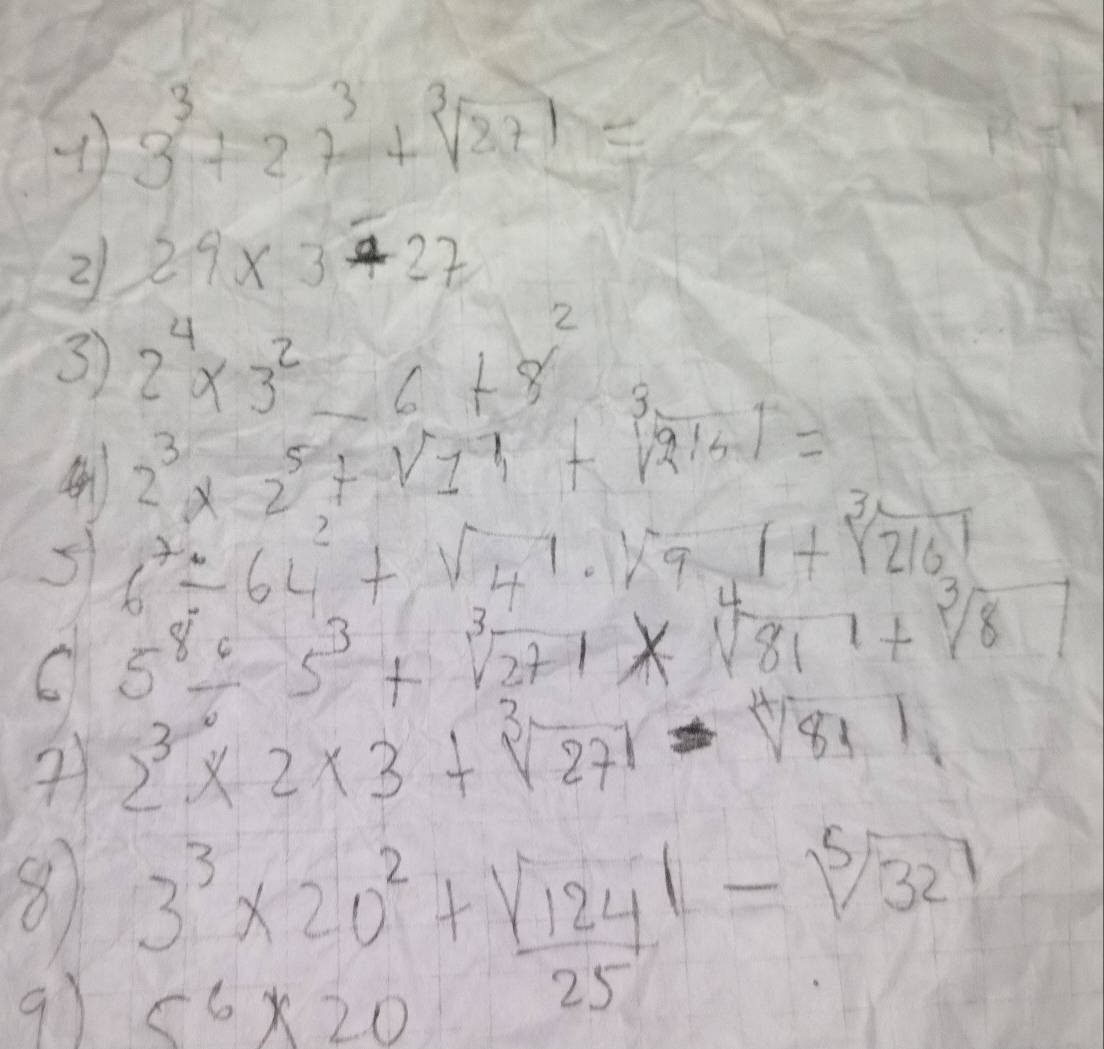 1) 3³ + 27³ + ∛27 =
2) 29 x 3 27
3) 2⁴ x 3² - 6 + 8²
4) 2³ x 2⁵ + √1 + ∛216 =
5) 6⁷ ÷ 64² + √4 . √9 + ∛216
6) 5⁸ ÷ 5³ + ∛27 x ∜81 + ∛8
7) 2³ x 2 x 3 + ∛27 - ∜81
8) 3³ x 20² + √124/25 - ⁵√32
9) 5⁶ x 20